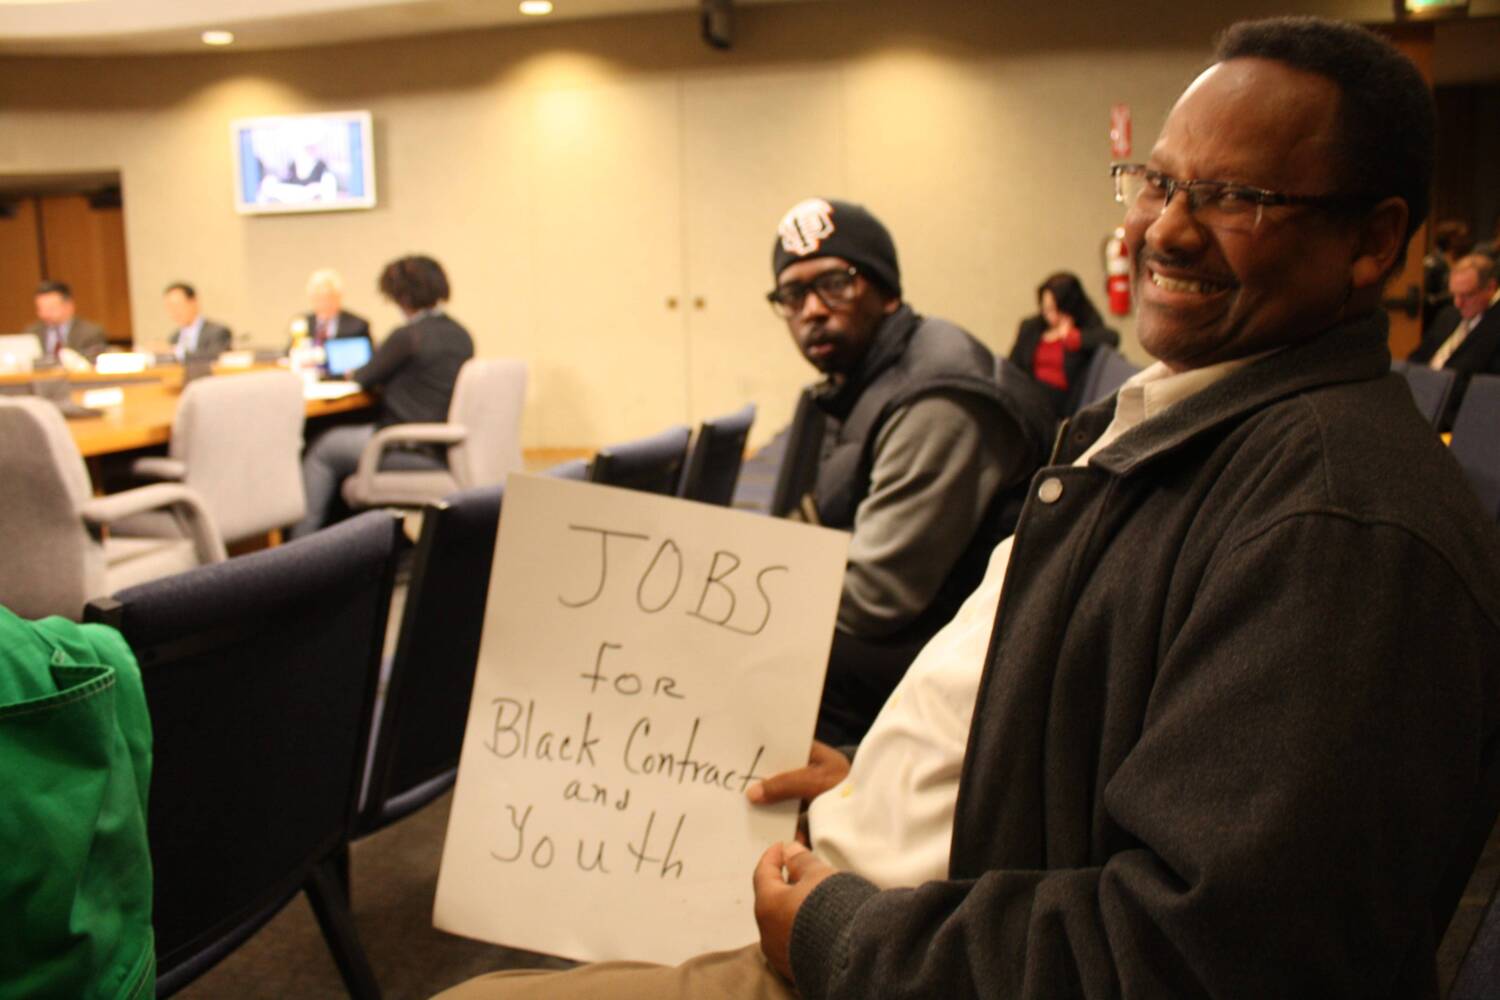 JOBS
FOR
Black Contract
and
Youth
SF